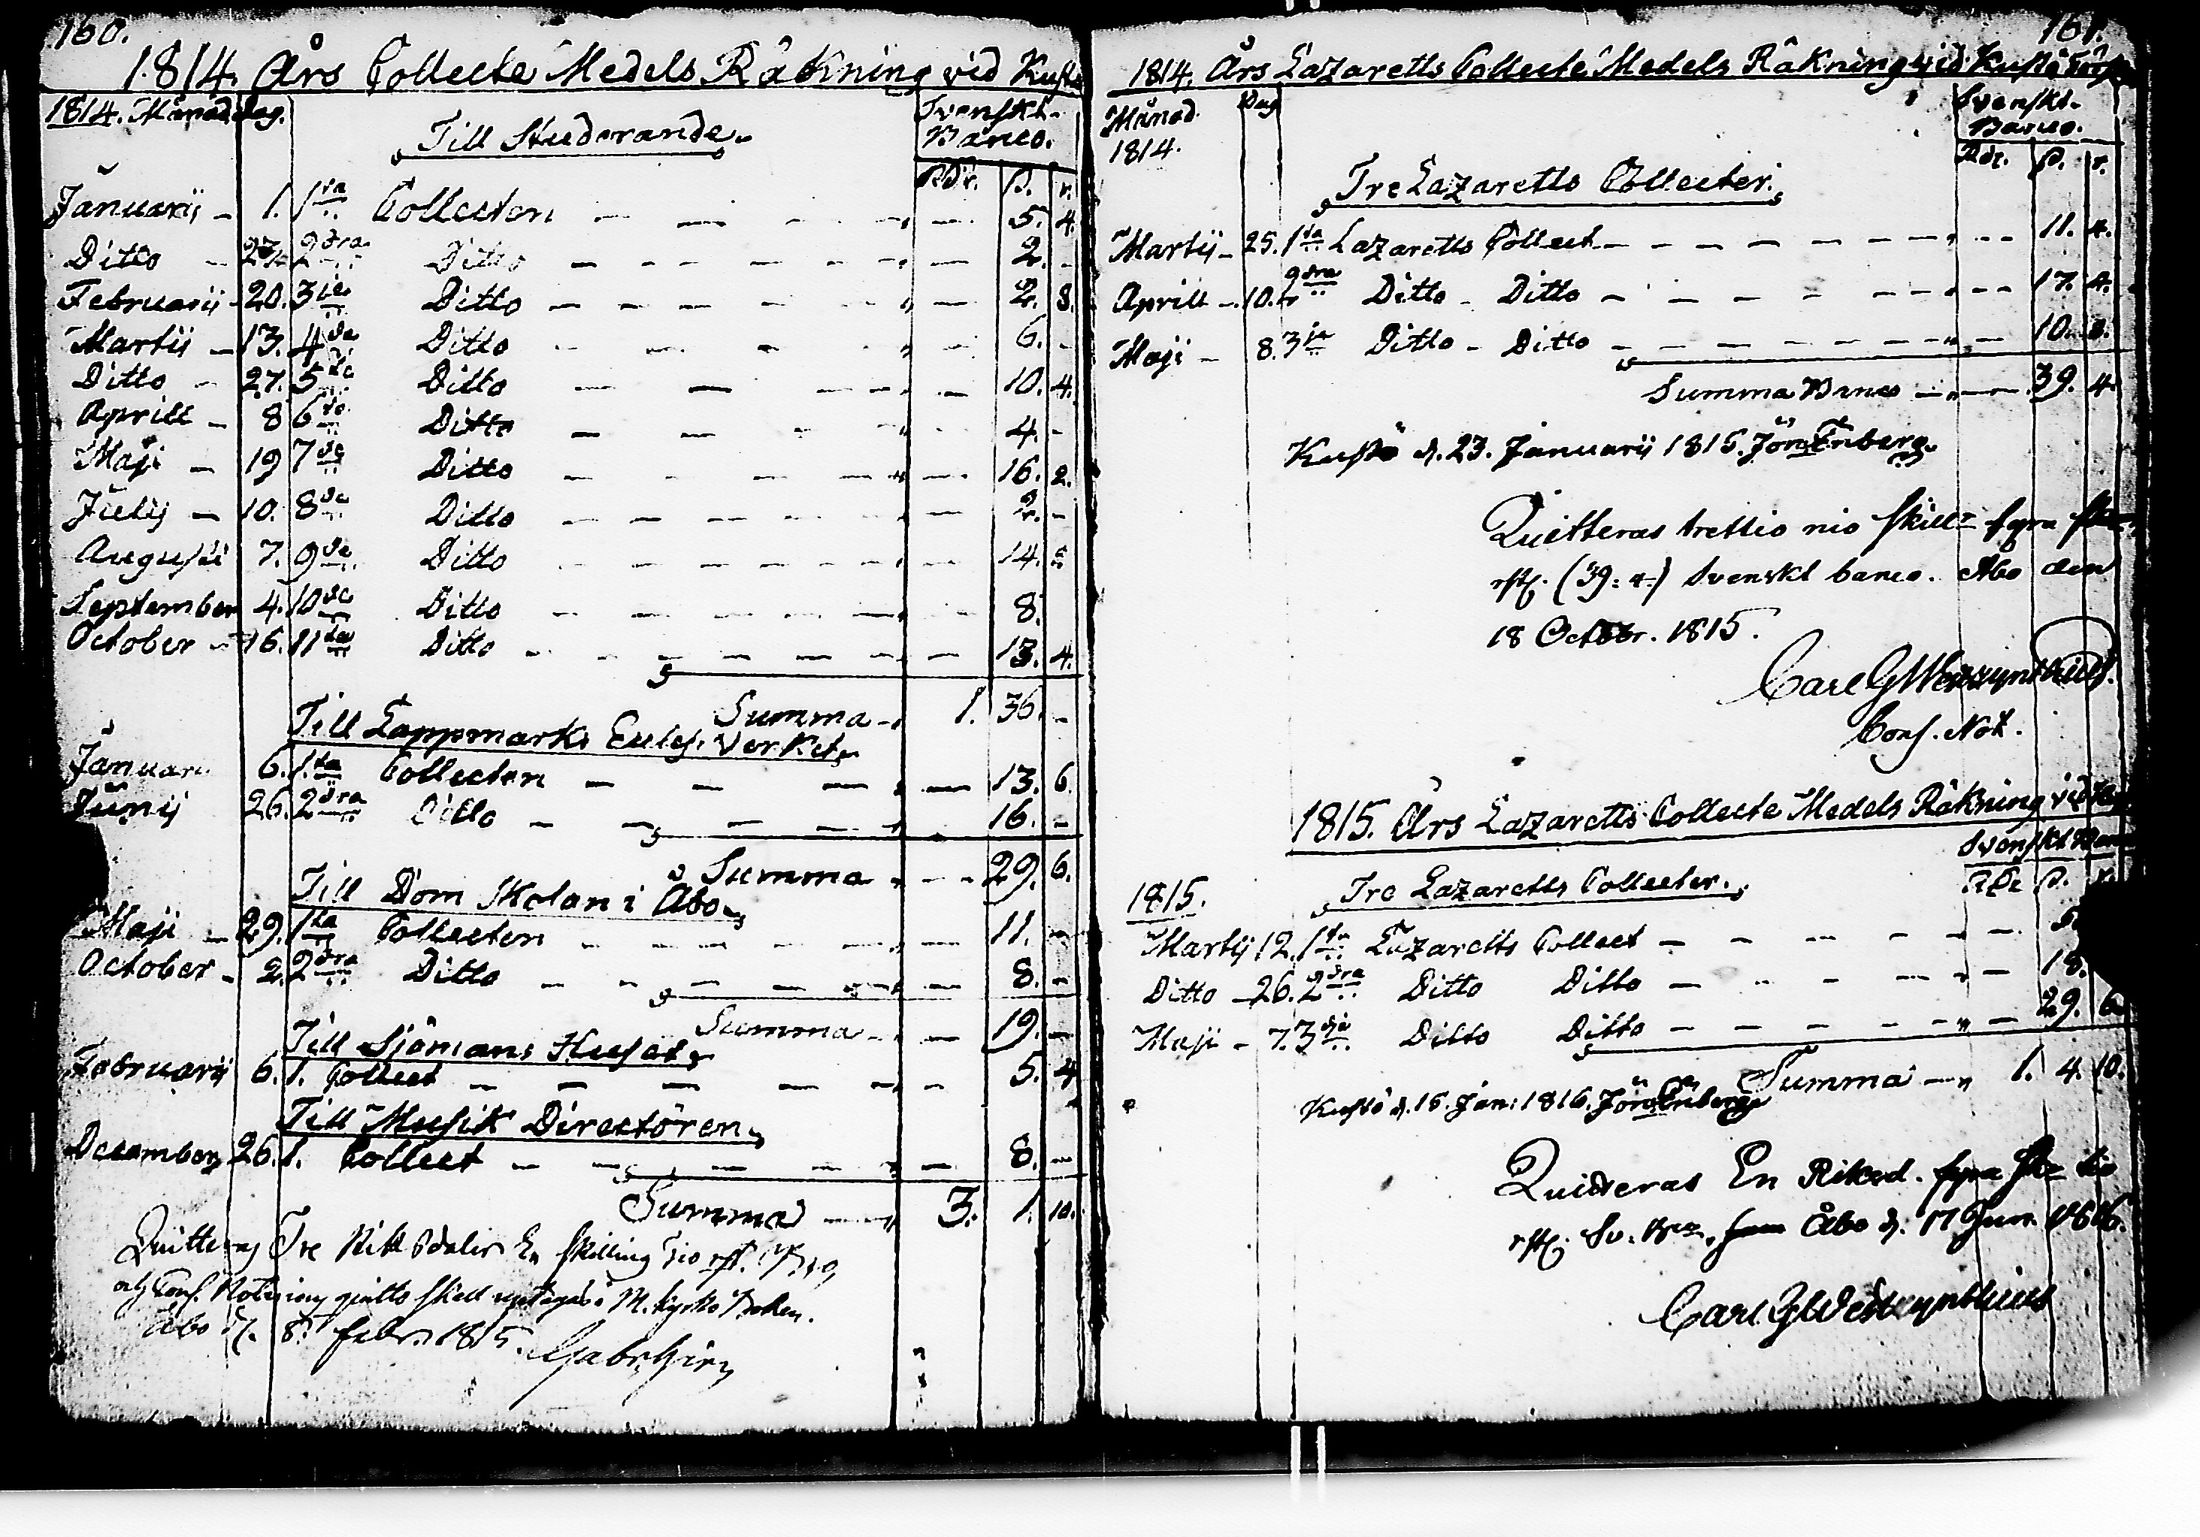 160.
1814. Års Collecte Medels Räkning vid Kustö
1814. Månad. dag. Svenskt.
Till Studerande. Banco.
Rdr. ß. r.
Januarii - 1. 1sta Collecten - - - - " - 5. 4.
Ditto - 2dra Ditto - - - - " - 2. -
Februarii - 20. 3je Ditto - - - - " - 2. 8.
Martii - 13. 4de Ditto - - - - " - 6. -
Ditto - 27. 5te Ditto - - - - " - 10. 4.
Aprill - 8 6te Ditto - - - - " - 4. -
Maji - 19 7de Ditto - - - - " - 16. 2.
Julij - 10. 8de Ditto - - - - " - 2. -
Augusti 7. 9de Ditto - - - - " - 14.
September 4. 10de Ditto - - - - " - 8.
October - 16. 11te Ditto - - - - " - 13. 4.
Summa - " 1. 36. -
Till Lappmarks Eccles. Verket.
Januari 6. 1sta Collecten - - - " - 13. 6.
Junij 26. 2dra Ditto - - - - " . 16. -
Summa - " - - 29. 6.
Till Dom Skolan i Åbo.
Maji - 29. 1sta Collecten - - - - " - 11. -
October - 2. 2dra Ditto - - - - " - 8. -
Summa - " - 19. -
Till Sjömans Huset.
Februarii 6. 1. Collect - - - - " - 5. 4
Till Musik Directören.
December 26. 1. Collect - - - - " - 8. -
Summa - " 3. 1. 10.
Quitteras Tre Riksdaler En Skilling Tio rst.
Åbo d. 8. febr. 1815.
161.
1814. Års Lazaretts Collecte Medels Räkning vid Kustö
Månad Dag Svenskt.
1814. Banco.
Rdr. ß. r.
Tre Lazaretts Collecter.
Martii - 25. 1sta Lazaretts Collect - - - - " - - 11. 4.
Aprill - 10. 2dra Ditto - Ditto - - - - " - - 17. 4.
Maji - 8. 3je Ditto - Ditto - - - - " - - 10. 8.
Summa Banco - " - 39. 4.
Kustö d. 23. Januarii 1815. Jöns Enberg.
Quitteras trettio nio skill: fyra
rst. (39: 4) Svenskt banco. Åbo den
18 Octobr. 1815.
Carl G Westzynthius.
Cons. Not.
1815. Års Lazaretts Collecte Medels Räkning vid
Svenskt
Rdr ß.
Tre Lazaretts Collecter.
1815.
Martij 12. 1sta Lazaretts Collect - - - - " - 5.
Ditto - 26. 2dra Ditto Ditto - - - - " - 18.
Maji - 7. 3dje Ditto Ditto - - - - " - 29. 6.
Summa - " 1. 4. 10.
Kustö d. 15. Jan: 1816. Jöns Enberg.
Quitteras En Riksd. fyra sk: tio
rst. Sv. Bco. Åbo d. 17 Jun. 1816.
Carl G Westzynthius